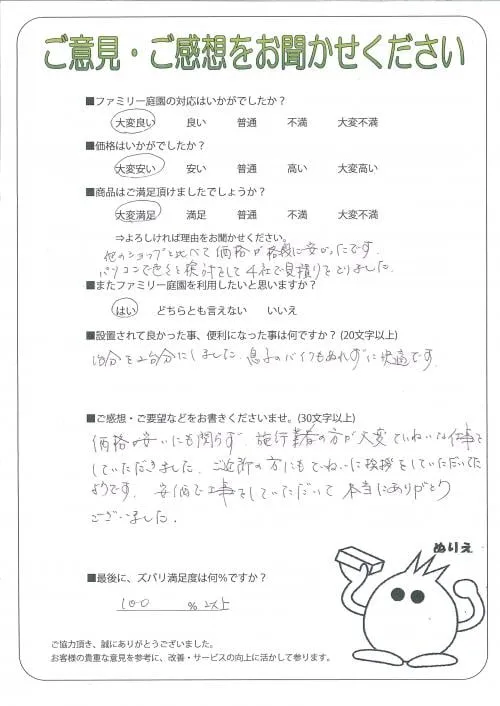 ご意見・ご感想をお聞かせください
■ファミリー庭園の対応はいかがでしたか？
大変良い 良い 普通 不満 大変不満
■価格はいかがでしたか？
大変安い 安い 普通 高い 大変高い
■商品はご満足頂けましたでしょうか？
大変満足 満足 普通 不満 大変不満
⇒よろしければ理由をお聞かせください。
他のショップと比べて価格が格段に安かったです。
パソコンで色々と検討をして4社で見積りをとりました。
■またファミリー庭園を利用したいと思いますか？
はい どちらとも言えない いいえ
■設置されて良かった事、便利になった事は何ですか？(20文字以上)
1台分を2台分にしました。息子のバイクもぬれずに快適です。
■ご感想・ご要望などをお書きくださいませ。(30文字以上)
価格が安いにも関らず、施行業者の方が大変ていねいな仕事を
していただきました。ご近所の方にもていねいに挨拶をしていただいた
ようです。安価で工事をしていただいて本当にありがとう
ございました。
ぬりえ
■最後に、ズバリ満足度は何％ですか？
100 ％以上
ご協力頂き、誠にありがとうございました。
お客様の貴重な意見を参考に、改善・サービスの向上に活かして参ります。